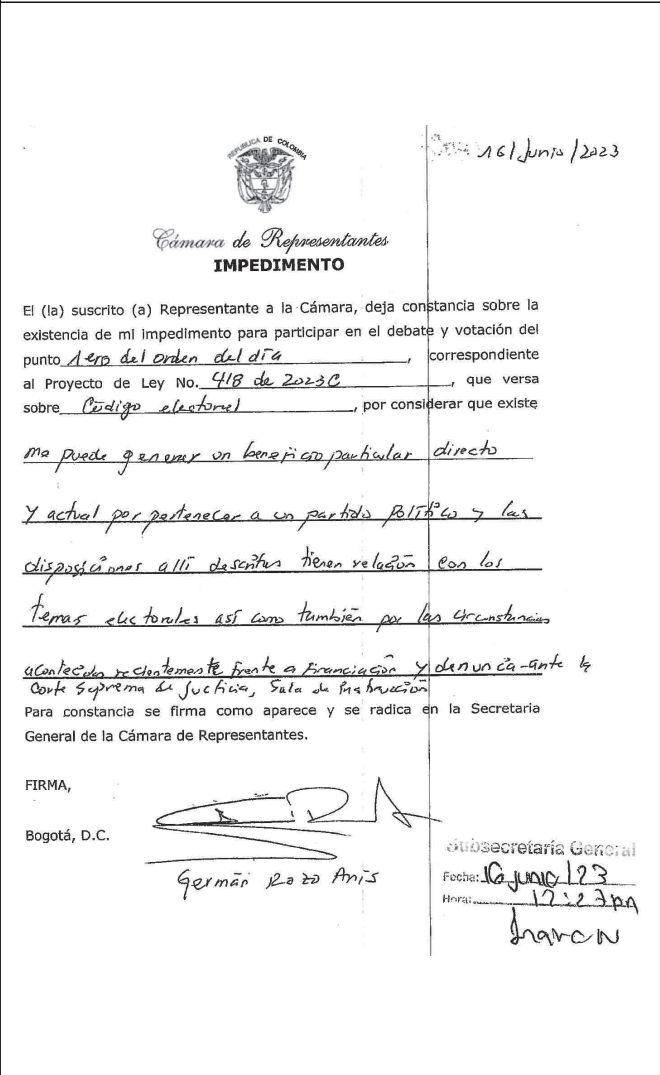 REPUBLICA DE COLOMBIA
16/Junio/2023
Cámara de Representantes
IMPEDIMENTO
El (la) suscrito (a) Representante a la Cámara, deja constancia sobre la
existencia de mi impedimento para participar en el debate y votación del
punto 1ero del orden del día, correspondiente
al Proyecto de Ley No. 418 de 2023C, que versa
sobre Código electoral, por considerar que existe
me puede generar un beneficio particular directo
Y actual por pertenecer a un partido Político y las
disposiciones allí descritas tienen relación con los
temas electorales así como también por las circunstancias
acontecidas recientemente frente a financiación y denuncia ante la
Corte Suprema de Justicia, Sala de Instrucción
Para constancia se firma como aparece y se radica en la Secretaria
General de la Cámara de Representantes.
FIRMA,
Bogotá, D.C.
Germán Rozo Anís
Subsecretaría General
Fecha: 16 junio/23
Hora: 12:27pm